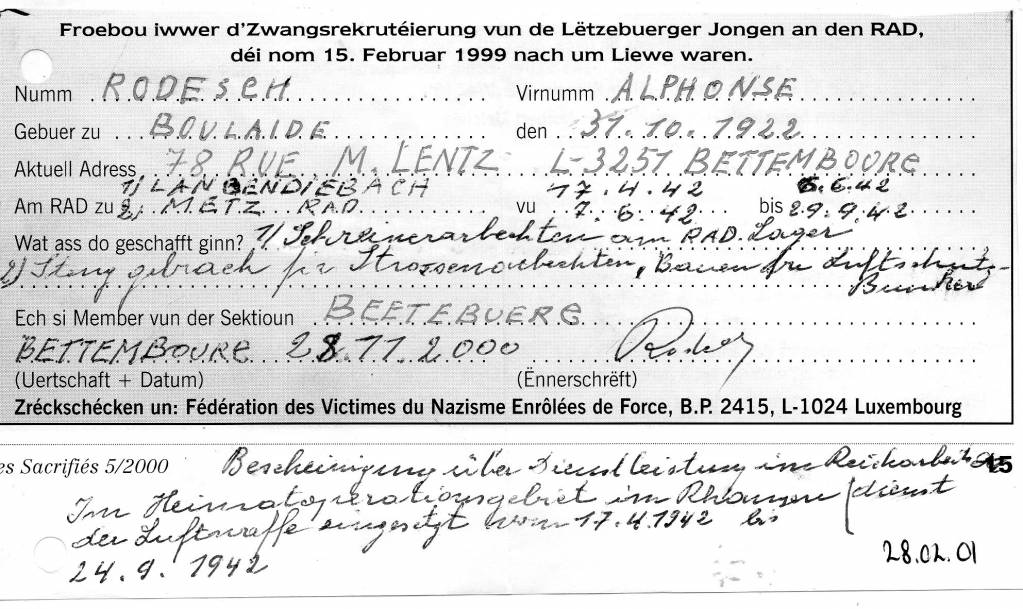 Froebou iwwer d'Zwangsrekrutéierung vun de Lëtzebuerger Jongen an den RAD,
déi nom 15. Februar 1999 nach um Liewe waren.
Numm RODESCH Virnumm ALPHONSE
Gebuer zu BOULAIDE den 31.10.1922
Aktuell Adress 78 RUE M. LENTZ L-3251 BETTEMBOURG
1) LANGENDIEBACH 17.4.42 6.6.42
Am RAD zu 2) METZ RAD vu 7.6.42 bis 29.9.42
Wat ass do geschafft ginn? 1) Schreinerarbechten am RAD. Lager
2) Steng gebrach fir Strossenarbechten, Bauen fir Luftschutz-
Bunker
Ech si Member vun der Sektioun BEETEBUERG
BETTEMBOURG 28.11.2000
(Uertschaft + Datum) (Ënnerschrëft)
Zréckschécken un: Fédération des Victimes du Nazisme Enrôlées de Force, B.P. 2415, L-1024 Luxembourg
es Sacrifiés 5/2000 Bescheinigung über Dienstleistung im Reicharbeits 15
Im Heimatoperationsgebiet im Rahmen dienst
der Luftwaffe eingesetzt vom 17.4.1942 bis
24.9.1942
28.02.01